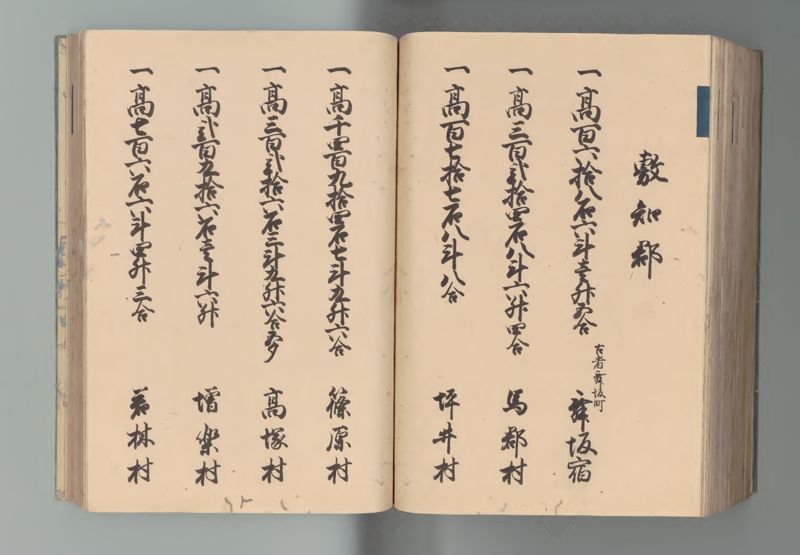 敷知郡
一高百六拾八石六斗壱升五合
古者舞坂町
舞坂宿
一高三百弐拾四石八斗六升四合
馬郡村
一高百七拾七石八斗八合
坪井村
一高千四百九拾四石七斗九升六合
篠原村
一高三百弐拾六石三斗九升六合五夕
高塚村
一高弐百九拾六石壱斗六升
増楽村
一高七百六石六斗四升三合
若林村